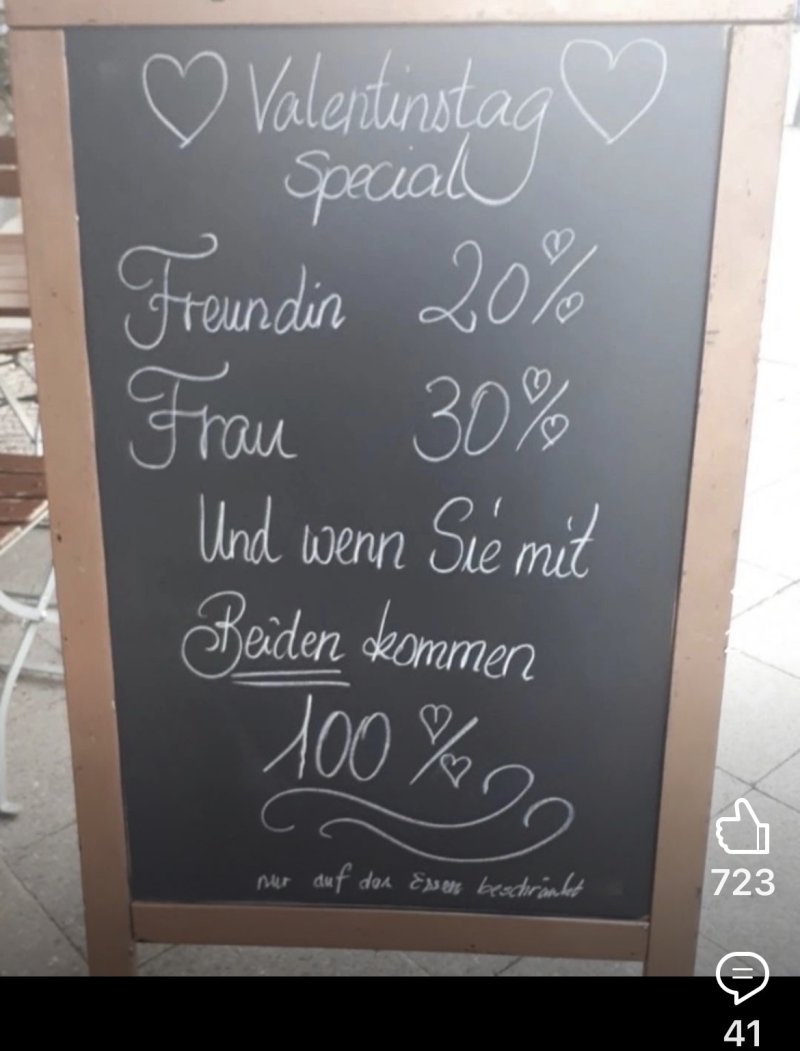 Valentinstag
Special
Freundin 20%
Frau 30%
Und wenn Sie mit
Beiden kommen
100%
nur auf das Essen beschränkt
723
41